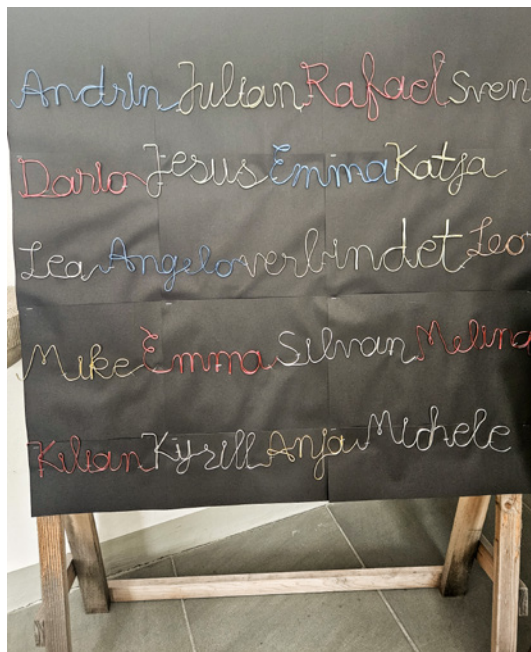 Andrin Julian Rafael Sven
Dario Jesus Emma Katja
Lea Angelo verbindet Leo
Mike Emma Silvan Melina
Kilian Kyrill Anja Michele